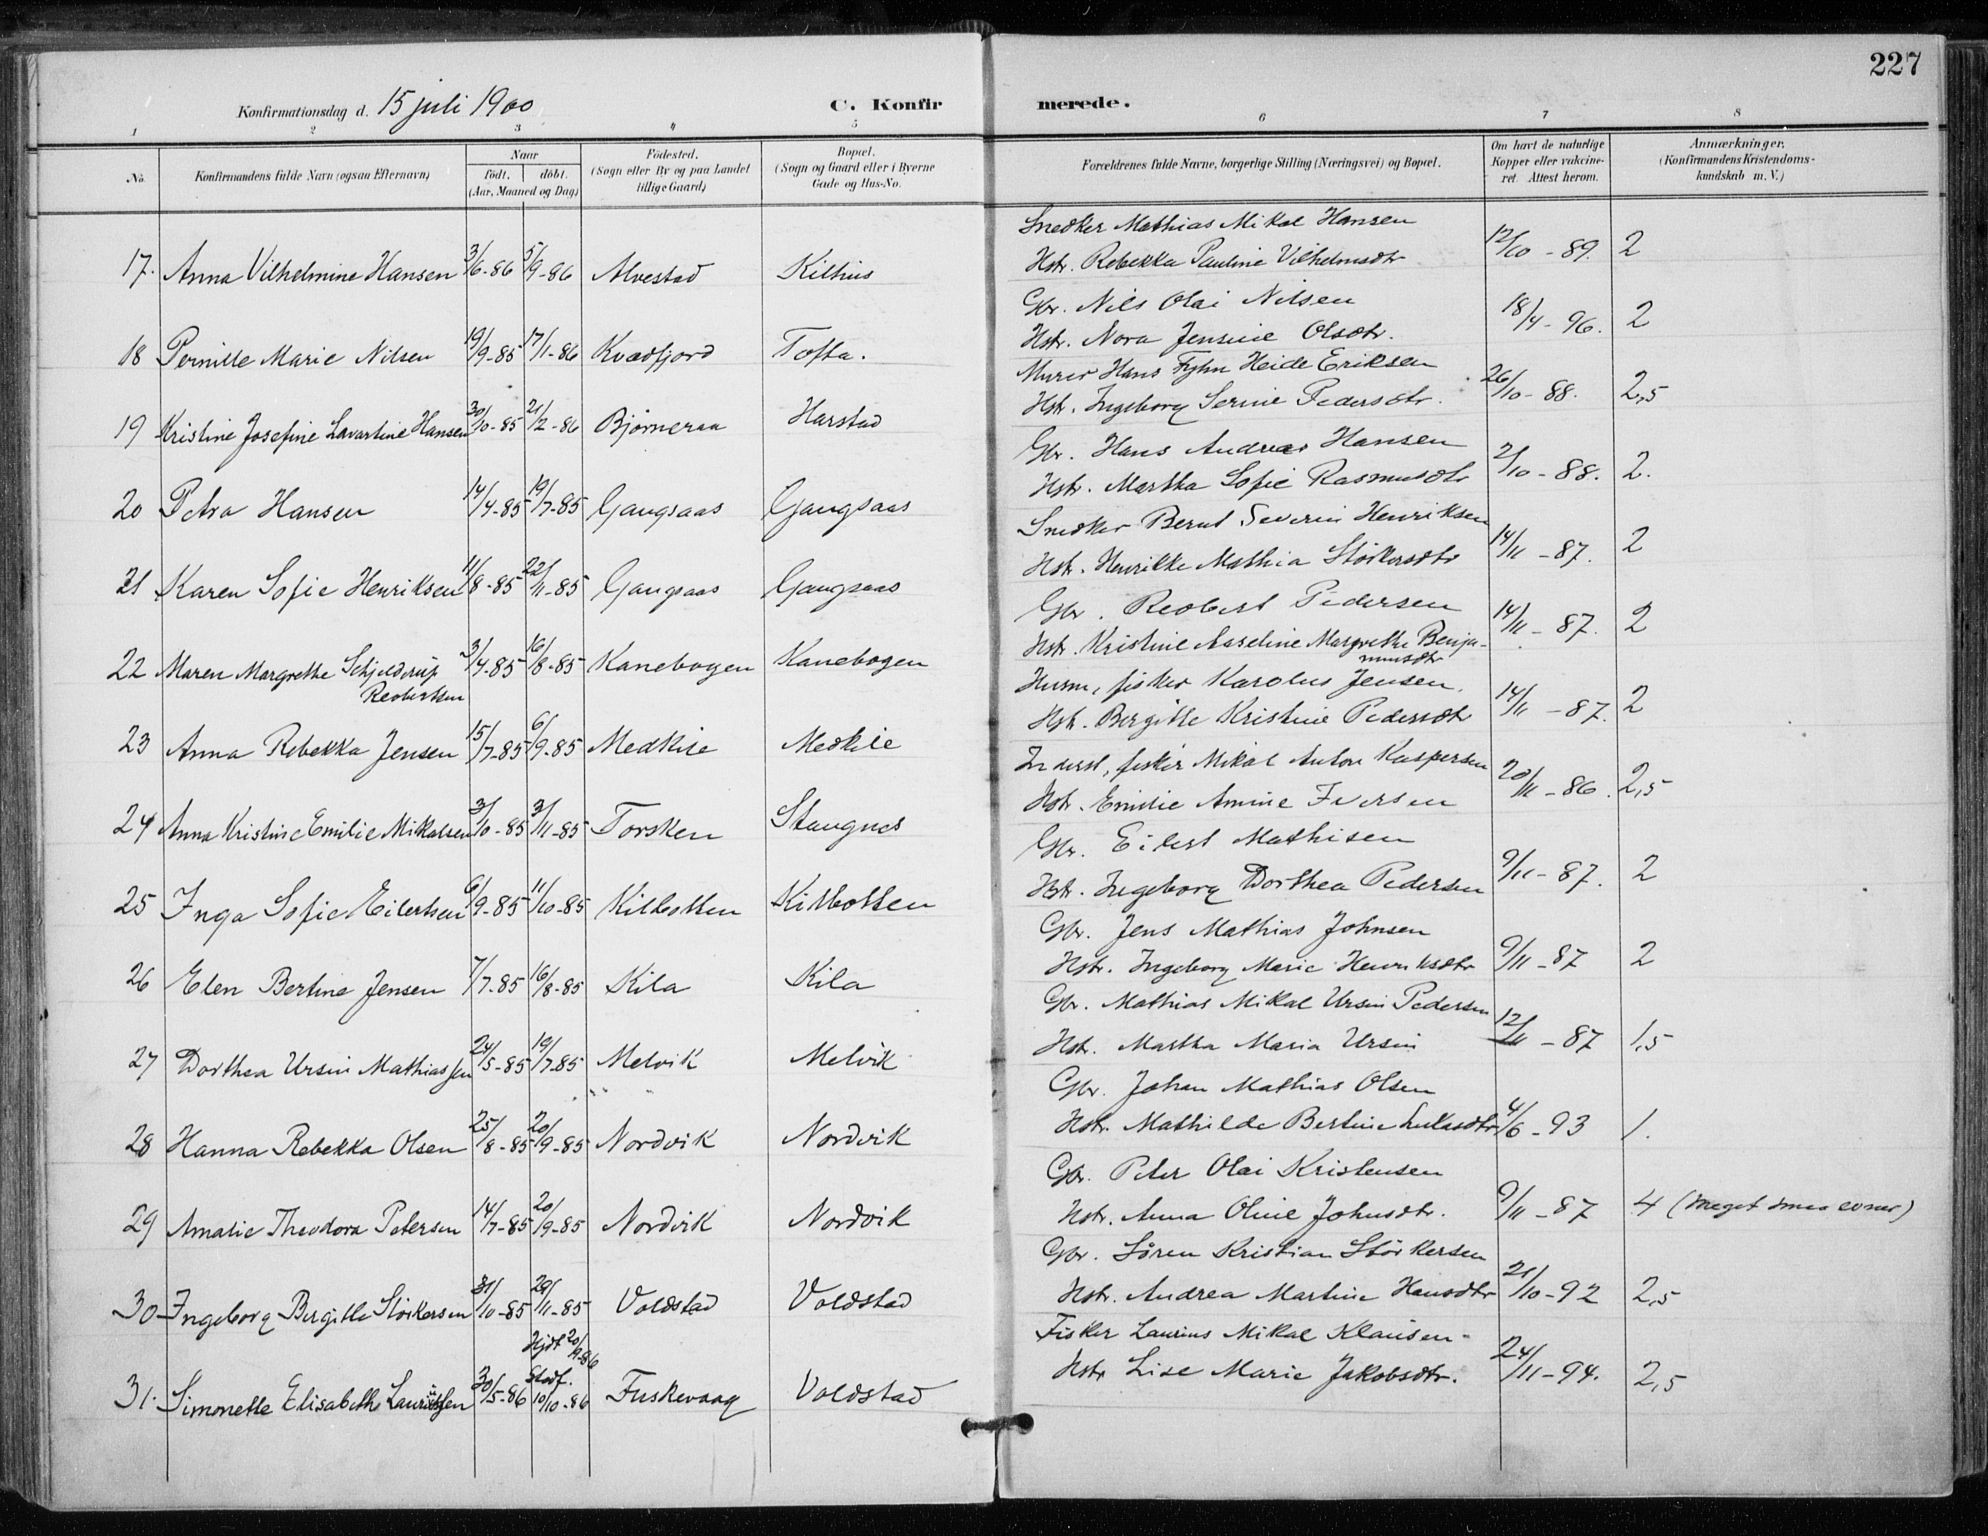 227
Konfirmationsdag d. 15 juli 1900
C. Konfirmerede.
1 2 3 4 5 6 7 8
No.
Konfirmandens fulde Navn (ogsaa Efternavn)
Naar
født. døbt.
(Aar, Maaned og Dag)
Fødested.
(Sogn eller By og paa Landet
tillige Gaard)
Bopæl.
(Sogn og Gaard eller i Byerne
Gade og Hus-No.
Forældrenes fulde Navne, borgerlige Stilling (Næringsvei) og Bopæl.
Om havt de naturlige
Kopper eller vakcine-
ret. Attest herom.
Anmærkninger.
(Konfirmandens Kristendoms-
kundskab m. V.)
Snedker Mathias Mikal Hansen
17. Anna Vilhelmine Hansen 3/6-86 5/9-86 Alvestad Kilhus Hstr. Rebekka Pauline Vilhelmsdtr 12/10-89. 2
Gbr. Nils Olai Nilsen
18 Pernille Marie Nilsen 19/9-85 17/1-86 Kvædfjord Tofta. Hstr. Nora Jensine Olsdtr. 18/4-96. 2
Murer Hans Fyhn Heide Eriksen
19 Kristine Josefine Lavartine Hansen 30/10-85 21/2-86 Bjørneraa Harstad Hstr. Ingeborg Serine Pedersdtr. 26/10-88. 2,5
Gbr. Hans Andreas Hansen
20 Petra Hansen 14/4-85 19/7-85 Gangsaas Gangsaas Hstr. Martha Sofie Rasmusdtr 2/10-88. 2.
Snedker Bernt Severin Henriksen
21 Karen Sofie Henriksen 11/8-85 22/11-85 Gangsaas Gangsaas Hstr. Henrikke Mathia Störkersdtr 14/11-87. 2
Gbr. Reobert Pedersen
22 Maren Margrethe Schjelderup 3/4-85 16/8-85 Kanebogen Kanebogen Hstr. Kristine Aaseline Margrethe Benja- 14/11-87. 2
Reobertsen
minsdtr
Husm, fisker Karolus Jensen.
23 Anna Rebekka Jensen 15/7-85 6/9-85 Medkile Medkile Hstr. Birgitte Kristine Pedersdtr 14/11-87. 2
Inderst, fisker Mikal Anton Kaspersen
24 Anna Kristine Emilie Mikalsen 3/10-85 3/11-85 Torsken Stangnes Hstr. Emilie Amine Iversen 20/11-86. 2,5
Gbr. Eilert Mathisen
25 Inga Sofie Eilertsen 6/9-85 11/10-85 Kilbotten Kilbotten Hstr. Ingeborg Dorthea Pedersen 9/11-87. 2
Gbr. Jens Mathias Johnsen
26 Elen Bertine Jensen 7/7-85 16/8-85 Kila Kila Hstr. Ingeborg Marie Henriksdtr 9/11-87 2
Gbr. Mathias Mikal Ursin Pedersen
27 Dorthea Ursin Mathiassen 24/5-85 19/7-85 Melvik Melvik Hstr. Martha Maria Ursin 12/11-87 1,5
Gbr. Johan Mathias Olsen
28 Hanna Rebekka Olsen 25/8-85 20/9-85 Nordvik Nordvik Hstr. Mathilde Bertine Lukasdtr 4/6-93 1.
Gbr. Peter Olai Kristensen
29 Amalie Theodora Petersen 14/7-85 20/9-85 Nordvik Nordvik Hstr. Anna Oline Johnsdtr. 9/11-87 4 (meget smaa evner)
Gbr. Sören Kristian Störkersen
30 Ingeborg Birgitte Störkersen 31/10-85 29/11-85 Voldstad Voldstad Hstr. Andrea Martine Hansdtr 21/10-92 2,5
Hjdt 20/9-86
Fisker Laurius Mikal Klausen-
Stadf.
31. Simonette Elisabeth Lauritssen 30/5-86 10/10-86 Fuskevaag Voldstad Hstr Lise Marie Jakobsdtr. 24/11-94. 2,5